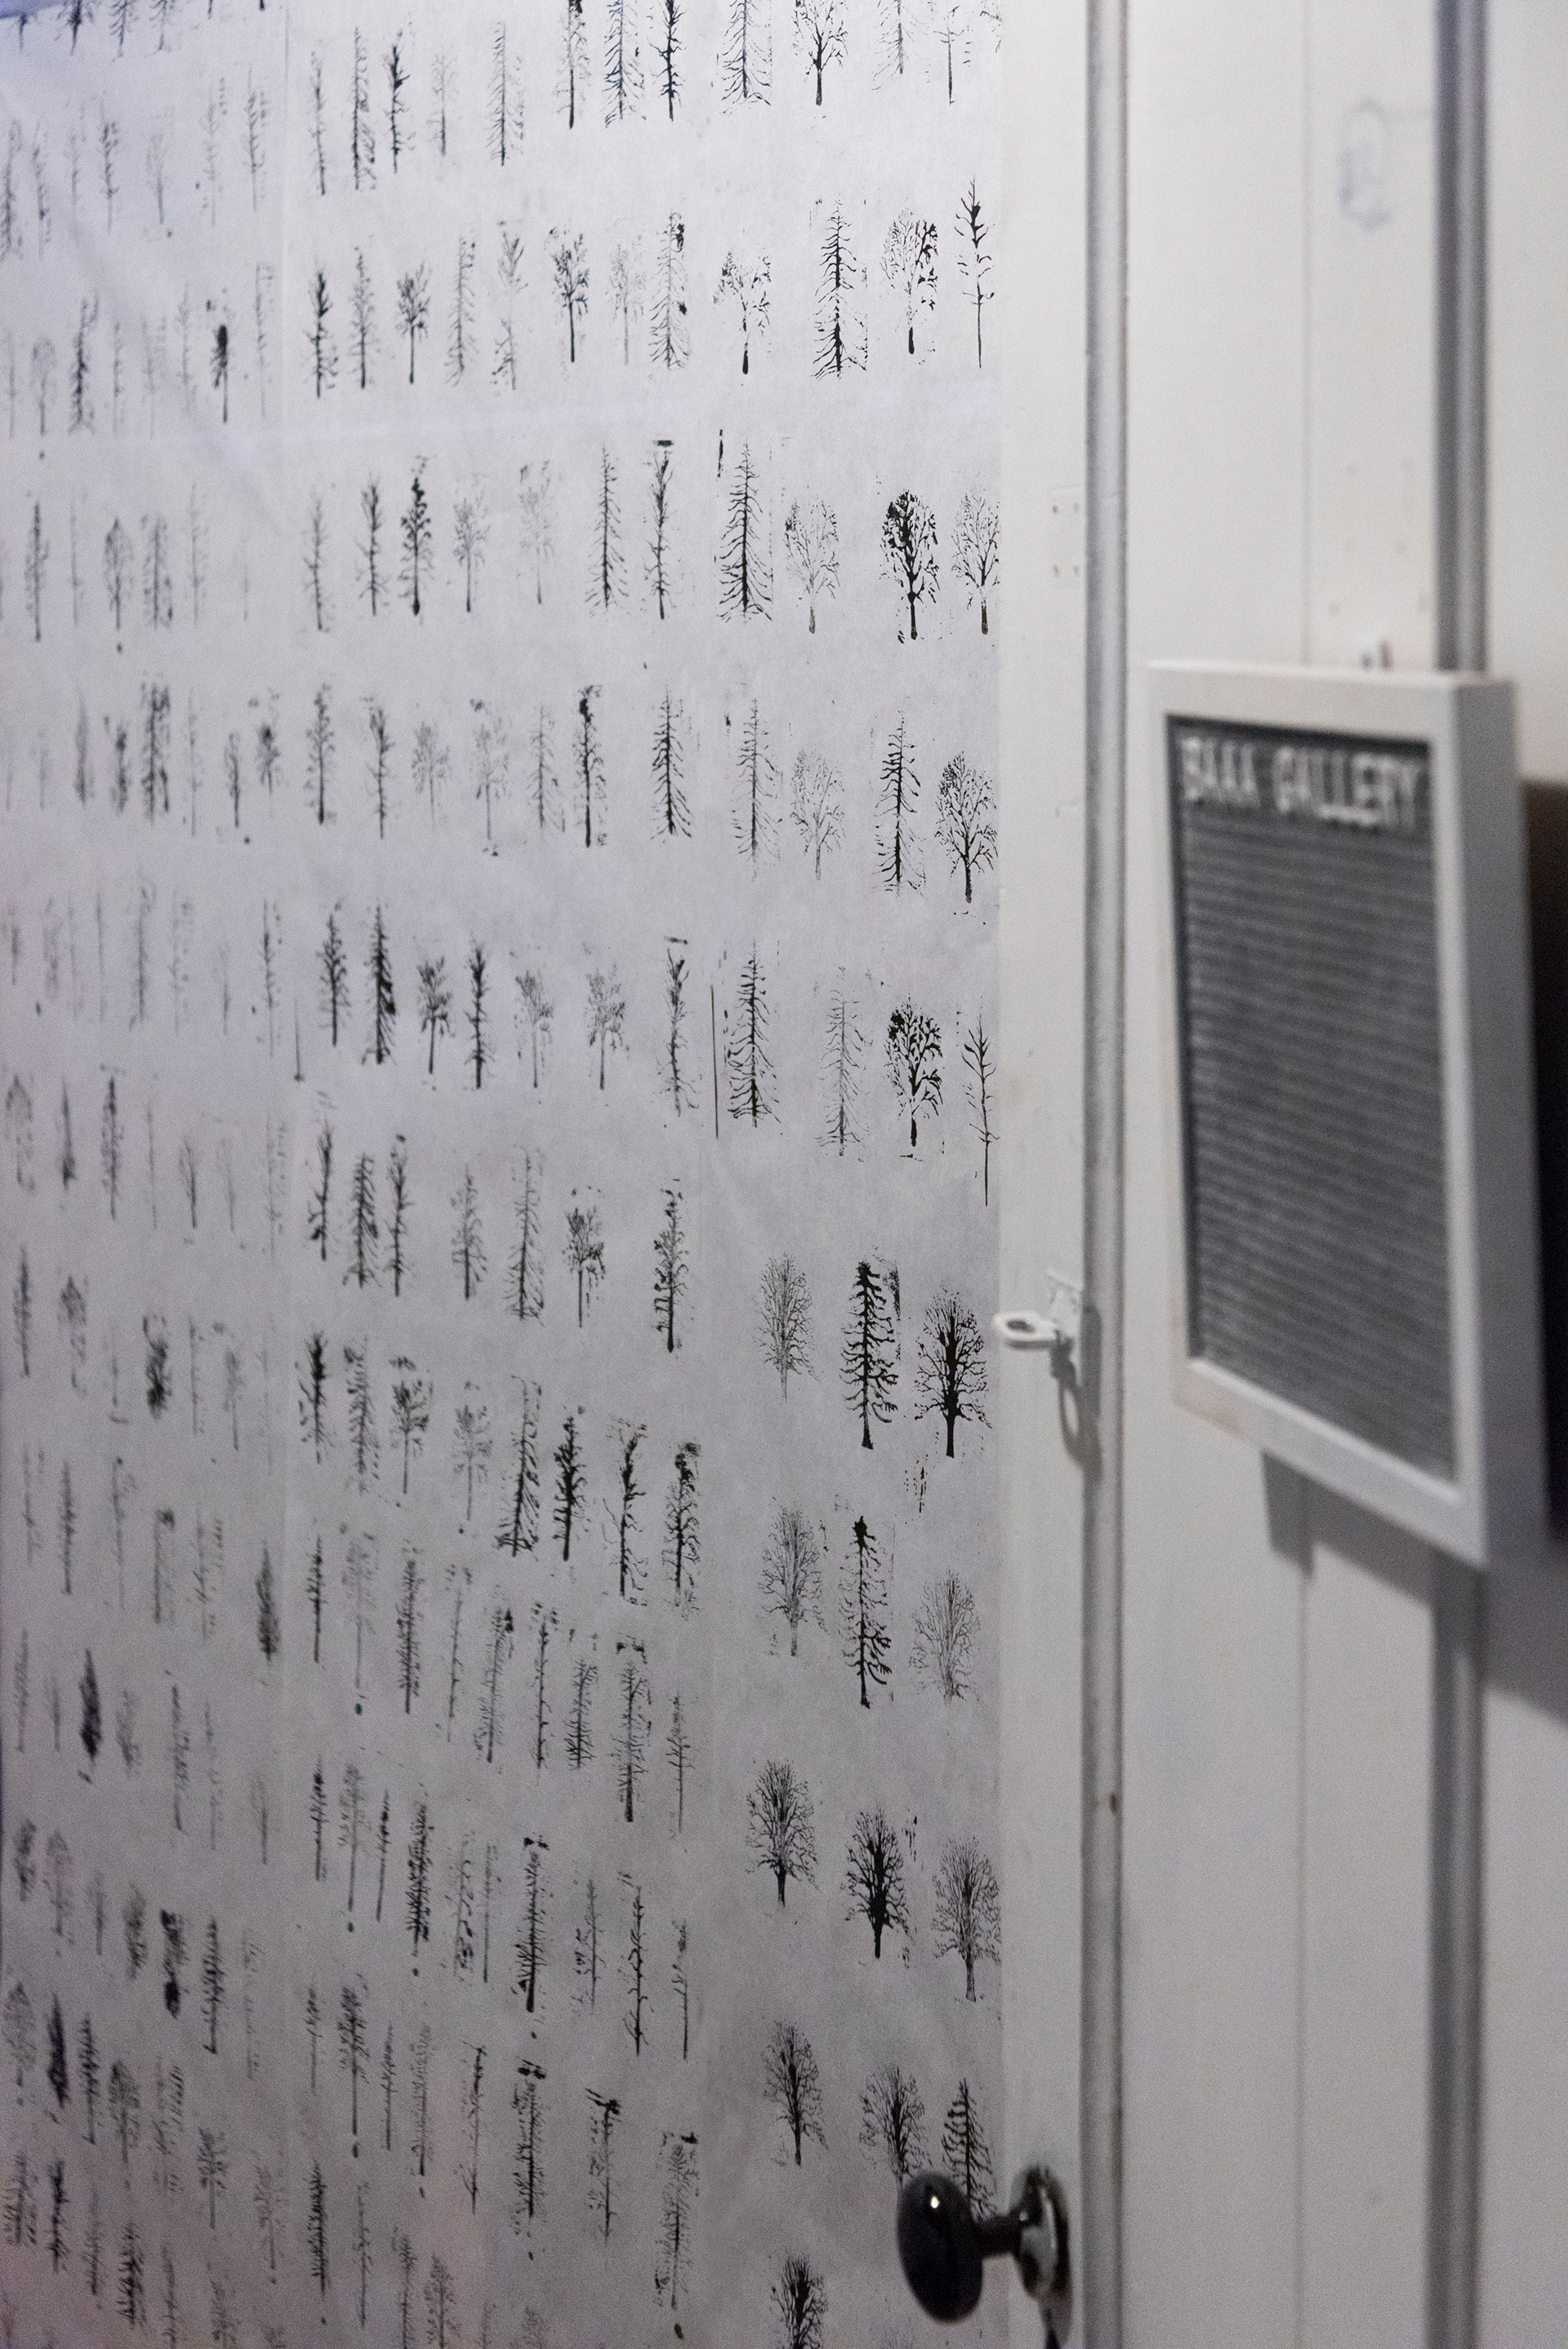 BAAA GALLERY